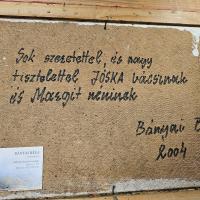 Sok szeretettel, és nagy
tisztelettel JÓSKA bácsinak
és Margit néninek
Bányai B
2004
BÁNYAI BÉLA